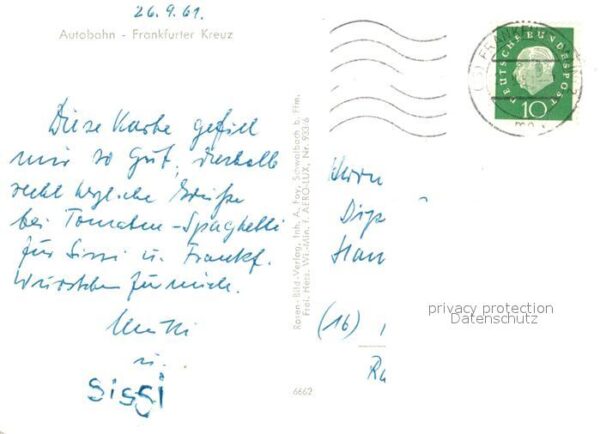 26.9.61.
Autobahn - Frankfurter Kreuz
DEUTSCHE BUNDESPOST
10
Diese Karte gefiel
mir so gut, deshalb
recht herzliche Grüße
bei Tomaten-Spaghetti
für Sissi u. Frankf.
Würstchen für mich.
Mutti
u.
Sissi
Rosen-Bild-Verlag, Inh. A. Fay, Schwalbach b. Ffm.
Frei. Hess. Wi.-Min. f. AERO-LUX, Nr. 933/6
6662
Herrn
Dip
Han
(16)
Ra
privacy protection
Datenschutz